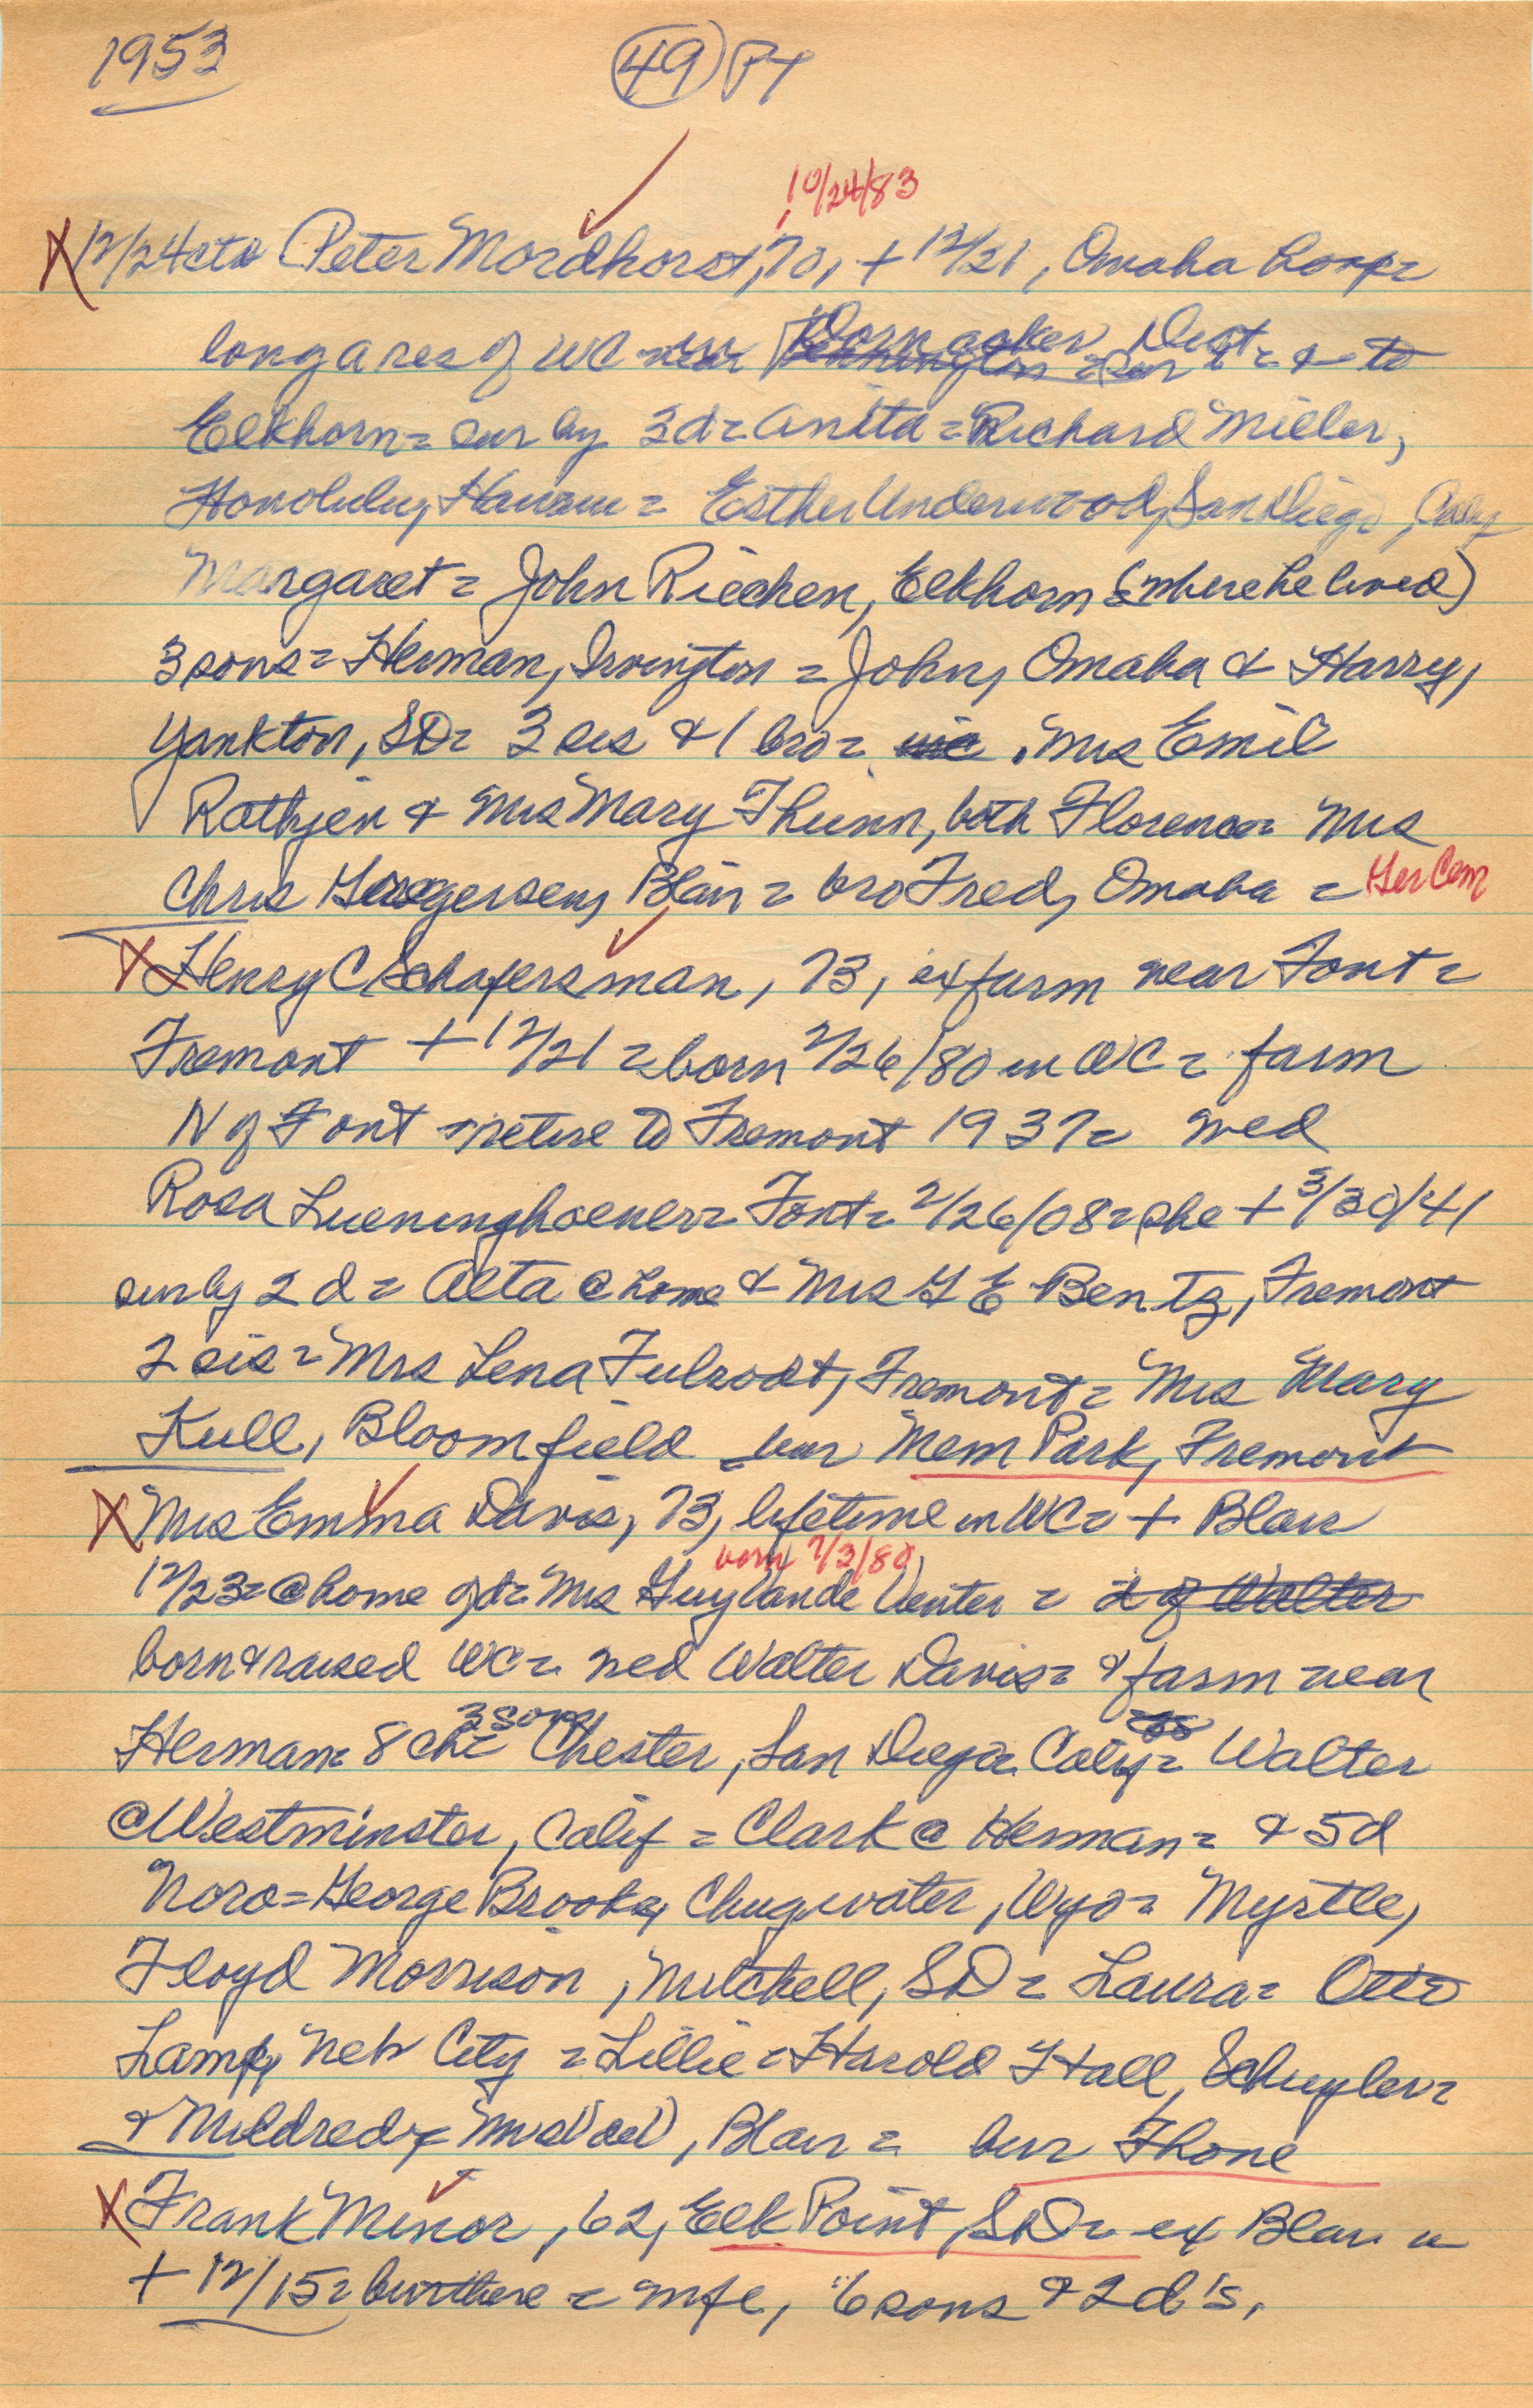 1953
49 PT
10/24/83
12/24 etd Peter Mordhorst, 70, + 12/21, Omaha hosp =
long a res of WC near Dornacker Dist = & to
Elkhorn = sur by 3 d = Anita = Richard Miller,
Honolulu, Hawaii = Esther Underwood, San Diego, Calif
Margaret = John Riecken, Elkhorn (where he lived)
3 sons = Herman, Irvington = John, Omaha & Harry,
Yankton, SD = 3 sis & 1 bro = Mrs Emil
Rathjen & Mrs Mary Thunn, both Florence = Mrs
Chris Jurgersen, Blair = bro Fred, Omaha = Ger Cem
Henry C Schafersman, 73, ex farm near Font =
Fremont + 12/21 = born 2/26/80 in WC = farm
N of Font = retire to Fremont 1937 = wed
Rosa Lueninghoener = Font = 2/26/08 = she + 3/30/41
sur by 2 d = Alta @ home & Mrs G E Bentz, Fremont
2 sis = Mrs Lena Fulrodt, Fremont = Mrs Mary
Kull, Bloomfield = bur Mem Park, Fremont
Mrs Emma Davis, 73, lifetime in WC = + Blair
born 7/3/80
12/23 = @ home of d = Mrs Guy Vande Venter = d of Walter
born & raised WC = wed Walter Davis = & farm near
3 sons
Herman = 8 ch = Chester, San Diego Calif = Walter
@ Westminster, Calif = Clark @ Herman = & 5 d
Nora = George Brooks, Chugwater, Wyo = Myrtle,
Floyd Morrison, Mitchell, SD = Laura = Otto
Lamp, Neb City = Lillie = Harold Hall, Schuyler =
& Mildred, Blair = bur Fhone
Frank Minor, 62, Elk Point, SD = ex Blair =
+ 12/15 = bur there = wife, 6 sons & 2 d's,